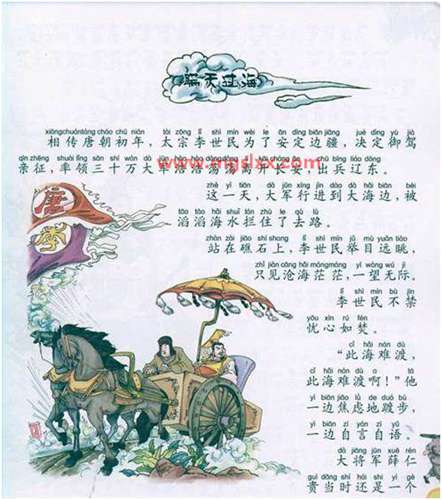 瞒天过海
xiāngchuántáng cháo chū nián tài zōng lǐ shì mín wèi le ān dìng biān jiāng jué dìng yù jià
相传唐朝初年，太宗李世民为了安定边疆，决定御驾
qīn zhēng shuài lǐng sān shí wàn dà jūn
亲征，率领三十万大军浩浩荡荡离开长安，出兵辽东。
zhè yì tiān dà jūn xíng jìn dào dà hǎi biān bèi
这一天，大军行进到大海边，被
tāo tāo hǎi shuǐ lán zhù le qù lù
滔滔海水拦住了去路。
zhàn zài jiāo shí shang lǐ shì mín jǔ mù yuǎn tiào
站在礁石上，李世民举目远眺，
zhǐ jiàn cāng hǎi mángmáng yí wàng wú jì
只见沧海茫茫，一望无际。
lǐ shì mín bù jīn
李世民不禁
yōu xīn rú fén
忧心如焚。
cǐ hǎi nán dù
“此海难渡，
cǐ hǎi nán dù a tā
此海难渡啊！”他
yì biān jiāo lǜ de duó bù
一边焦虑地踱步，
yì biān zì yán zì yǔ
一边自言自语。
dà jiāng jūn xuē rén
大将军薛仁
guì dāng shí hái shì yí gè
贵当时还是一个
唐